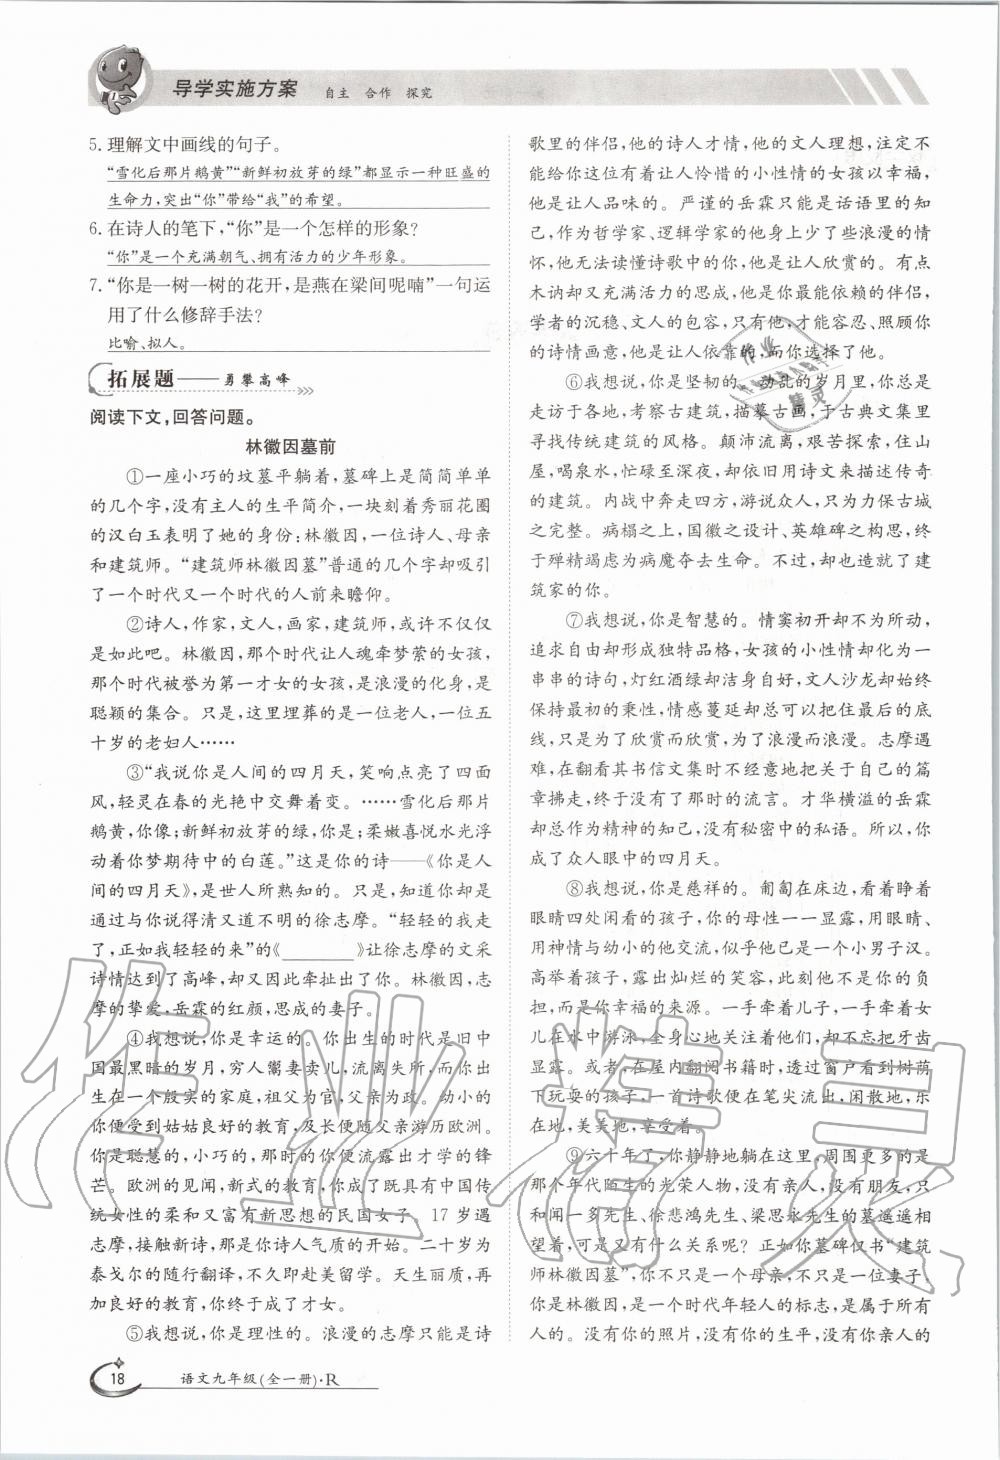 导学实施方案 自主 合作 探究
5. 理解文中画线的句子。
“雪化后那片鹅黄”“新鲜初放芽的绿”都显示一种旺盛的
生命力,突出“你”带给“我”的希望。
6. 在诗人的笔下,“你”是一个怎样的形象?
“你”是一个充满朝气、拥有活力的少年形象。
7. “你是一树一树的花开,是燕在梁间呢喃”一句运
用了什么修辞手法?
比喻、拟人。
拓展题——勇攀高峰
阅读下文,回答问题。
林徽因墓前
①一座小巧的坟墓平躺着,墓碑上是简简单单
的几个字,没有主人的生平简介,一块刻着秀丽花圈
的汉白玉表明了她的身份:林徽因,一位诗人、母亲
和建筑师。“建筑师林徽因墓”普通的几个字却吸引
了一个时代又一个时代的人前来瞻仰。
②诗人,作家,文人,画家,建筑师,或许不仅仅
是如此吧。林徽因,那个时代让人魂牵梦萦的女孩,
那个时代被誉为第一才女的女孩,是浪漫的化身,是
聪颖的集合。只是,这里埋葬的是一位老人,一位五
十岁的老妇人……
③“我说你是人间的四月天,笑响点亮了四面
风,轻灵在春的光艳中交舞着变。……雪化后那片
鹅黄,你像;新鲜初放芽的绿,你是;柔嫩喜悦水光浮
动着你梦期待中的白莲。”这是你的诗——《你是人
间的四月天》,是世人所熟知的。只是,知道你却是
通过与你说得清又道不明的徐志摩。“轻轻的我走
了,正如我轻轻的来”的《________》让徐志摩的文采
诗情达到了高峰,却又因此牵扯出了你。林徽因,志
摩的挚爱,岳霖的红颜,思成的妻子。
④我想说,你是幸运的。你出生的时代是旧中
国最黑暗的岁月,穷人鬻妻卖儿,流离失所,而你出
生在一个殷实的家庭,祖父为官,父亲为政。幼小的
你便受到姑姑良好的教育,及长便随父亲游历欧洲。
你是聪慧的,小巧的,那时的你便流露出才学的锋
芒。欧洲的见闻,新式的教育,你成了兼具中国传
统女性的柔和又富有新思想的民国女子。17岁遇
志摩,接触新诗,那是你诗人气质的开始。二十岁为
泰戈尔的随行翻译,不久即赴美留学。天生丽质,再
加良好的教育,你终于成了才女。
⑤我想说,你是理性的。浪漫的志摩只能是诗
歌里的伴侣,他的诗人才情,他的文人理想,注定不
能给你这位有着让人怜惜的小性情的女孩以幸福,
他是让人品味的。严谨的岳霖只能是话语里的知
己,作为哲学家、逻辑学家的他身上少了些浪漫的情
怀,他无法读懂诗歌中的你,他是让人欣赏的。有点
木讷却又充满活力的思成,他是你最能依赖的伴侣,
学者的沉稳、文人的包容,只有他,才能容忍、照顾
你的诗情画意,他是让人依靠的,而你选择了他。
⑥我想说,你是坚韧的。动乱的岁月里,你总是
走访于各地,考察古建筑,描摹古画,于古典文集里
寻找传统建筑的风格。颠沛流离,艰苦探索,住山
屋,喝泉水,忙碌至深夜,却依旧用诗文来描述传奇
的建筑。内战中奔走四方,游说众人,只为力保古城
之完整。病榻之上,国徽之设计、英雄碑之构思,终
于殚精竭虑为病魔夺去生命。不过,却也造就了建
筑家的你。
⑦我想说,你是智慧的。情窦初开却不为所动,
追求自由却形成独特品格,女孩的小性情却化为一
串串的诗句,灯红酒绿却洁身自好,文人沙龙却始终
保持最初的秉性,情感蔓延却总可以把住最后的底
线,只是为了欣赏而欣赏,为了浪漫而浪漫。志摩遇
难,在翻看其书信文集时不经意地把关于自己的篇
章拂走,终于没有了那时的流言。才华横溢的岳霖
却总作为精神的知己,没有秘密中的私语。所以,你
成了众人眼中的四月天。
⑧我想说,你是慈祥的。匍匐在床边,看着睁着
眼睛四处闲看的孩子,你的母性一一显露,用眼睛、
用神情与幼小的他交流,似乎他已是一个小男子汉。
高举着孩子,露出灿烂的笑容,此刻他不是你的负
担,而是你幸福的来源。一手牵着儿子,一手牵着女
儿在水中游泳,全身心地关注着他们,却不忘把牙齿
显露。或者,在屋内翻阅书籍时,透过窗户看到树荫
下玩耍的孩子,一首诗歌便在笔尖流出,闲散地,乐
在地,美美地,享受着。
⑨六十年了,你静静地躺在这里,周围更多的是
那个年代陌生的光荣人物,没有亲人,没有相识,只
和闻一多先生、徐悲鸿先生、梁思永先生的墓遥遥相
望着,可是又有什么关系呢?正如你墓碑仅书“建筑
师林徽因墓”,你不只是一个母亲,不只是一位妻子。
你是林徽因,是一个时代年轻人的标志,是属于所有
人的。没有你的照片,没有你的生平,没有你亲人的
18 语文九年级(全一册)·R
作业精灵
作业精灵